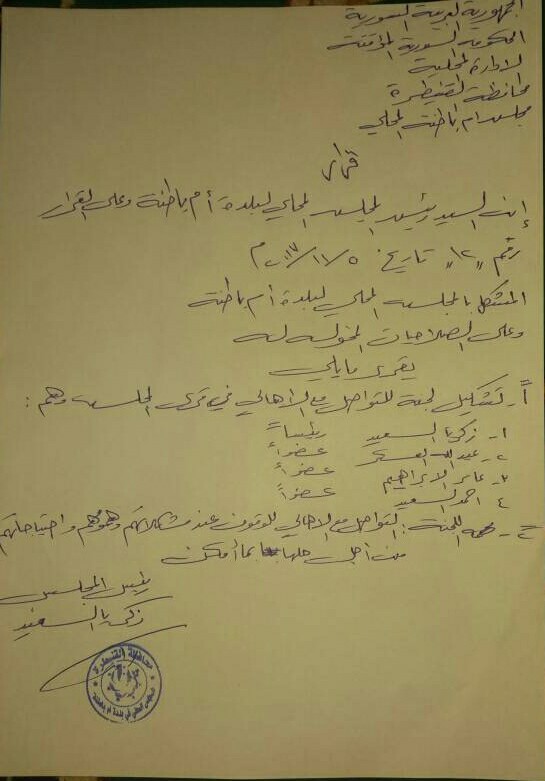 الجمهورية العربية السورية
الحكومة السورية المؤقتة
الادارة المحلية
محافظة القنيطرة
مجلس ام باطنة المحلي
قرار
إن السيد رئيس المجلس المحلي لبلدة أم باطنة وعلى القرار
رقم "١٢" تاريخ ٢٠١٧/١١/٥ م
المشكل بالمجلس المحلي لبلدة أم باطنة
وعلى الصلاحيات المخولة له
يقرر مايلي
أ- تشكيل لجنة للتواصل مع الاهالي في قرى المجلس وهم:
١- زكريا السعيد رئيساً
٢- عبدالله العسكر عضواً
٣- عامر الابراهيم عضواً
٤ احمد السعيد عضواً
ج- مهمة اللجنة: التواصل مع الاهالي للوقوف عند مشكلاتهم وهمومهم واحتياجاتهم
من أجل حلها بما أمكن
رئيس المجلس
زكريا السعيد
محافظة القنيطرة
المجلس المحلي في بلدة أم باطنة